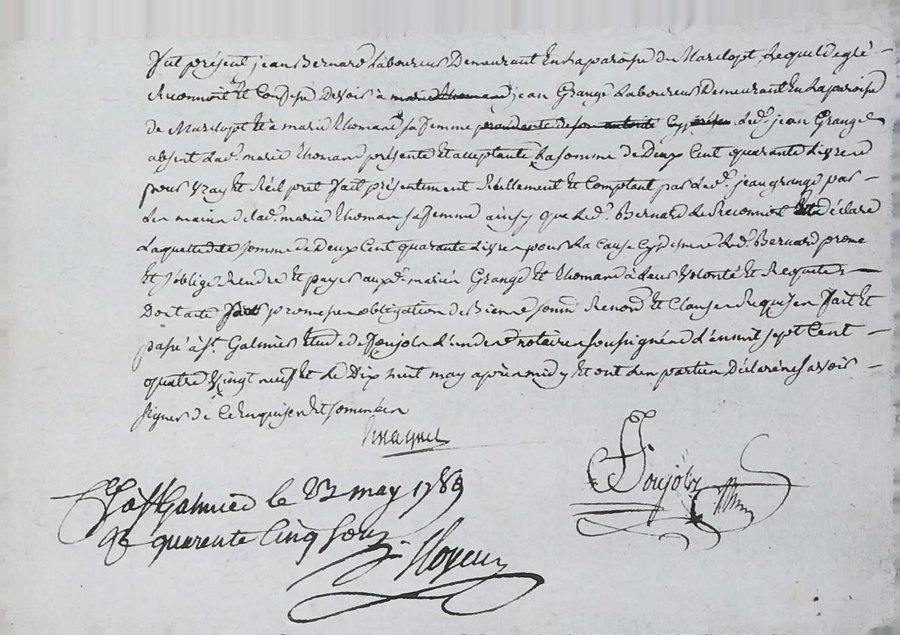 fut présent jean Bernard Laboureur Demeurant En La paroisse De Marclopt, Lequel De gré
Reconnoit Et Confesse Devoir à jean Grange Laboureur Demeurant En La paroisse
de Marclopt Et à marie thomand sa femme Led. jean Grange
absent Lad. marie thomand présente Et acceptante La somme de Deux Cent quarante Livre
pour vray Et Réel prit fait présentement Réellement Et Comptant par Led. jean grange par
Les mains de Lad. marie thoman sa femme ainsy que Led. Bernard Le Reconnoit déclare
Laquelle dite somme de Deux Cent quarante Livre pour La Cause Cy dessus Led. Bernard promet
Et s'oblige Rendre Et payer aux d. mariés Grange Et thomand à Leur volonté Et Requête
Dont acte promesse obligation de Biens soum. Renon. Et Clauses Requises fait Et
passé à St. Galmier Etude de Poujol L'un des notaires soussignés L'an mil sept Cent
quatre vingt neuf Et Le Dix huit may après midy Et ont Les parties déclaré ne savoir
signer de Ce Enquises Et sommées
a St Galmier le may 1789
quarente Cinq sous